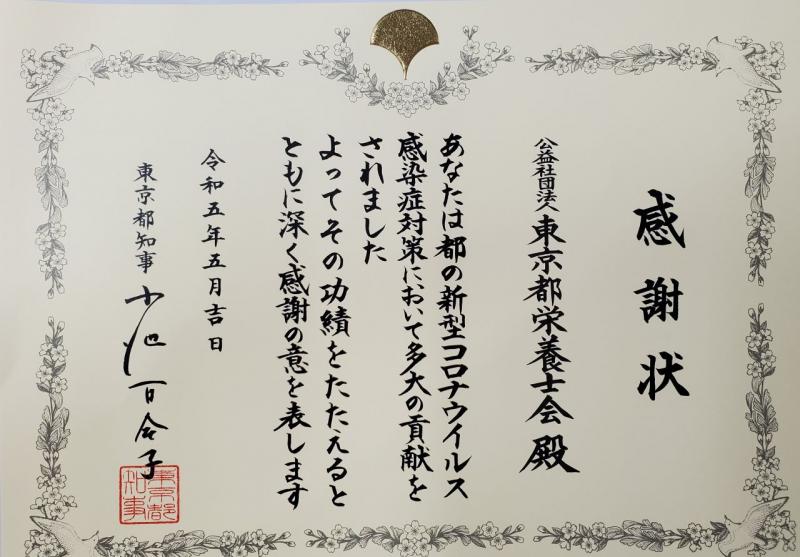 感謝状
公益社団法人東京都栄養士会殿
あなたは都の新型コロナウイルス
感染症対策において多大の貢献を
されました
よってその功績をたたえると
ともに深く感謝の意を表します
令和五年五月吉日
東京都知事 小池百合子
東京都
知事